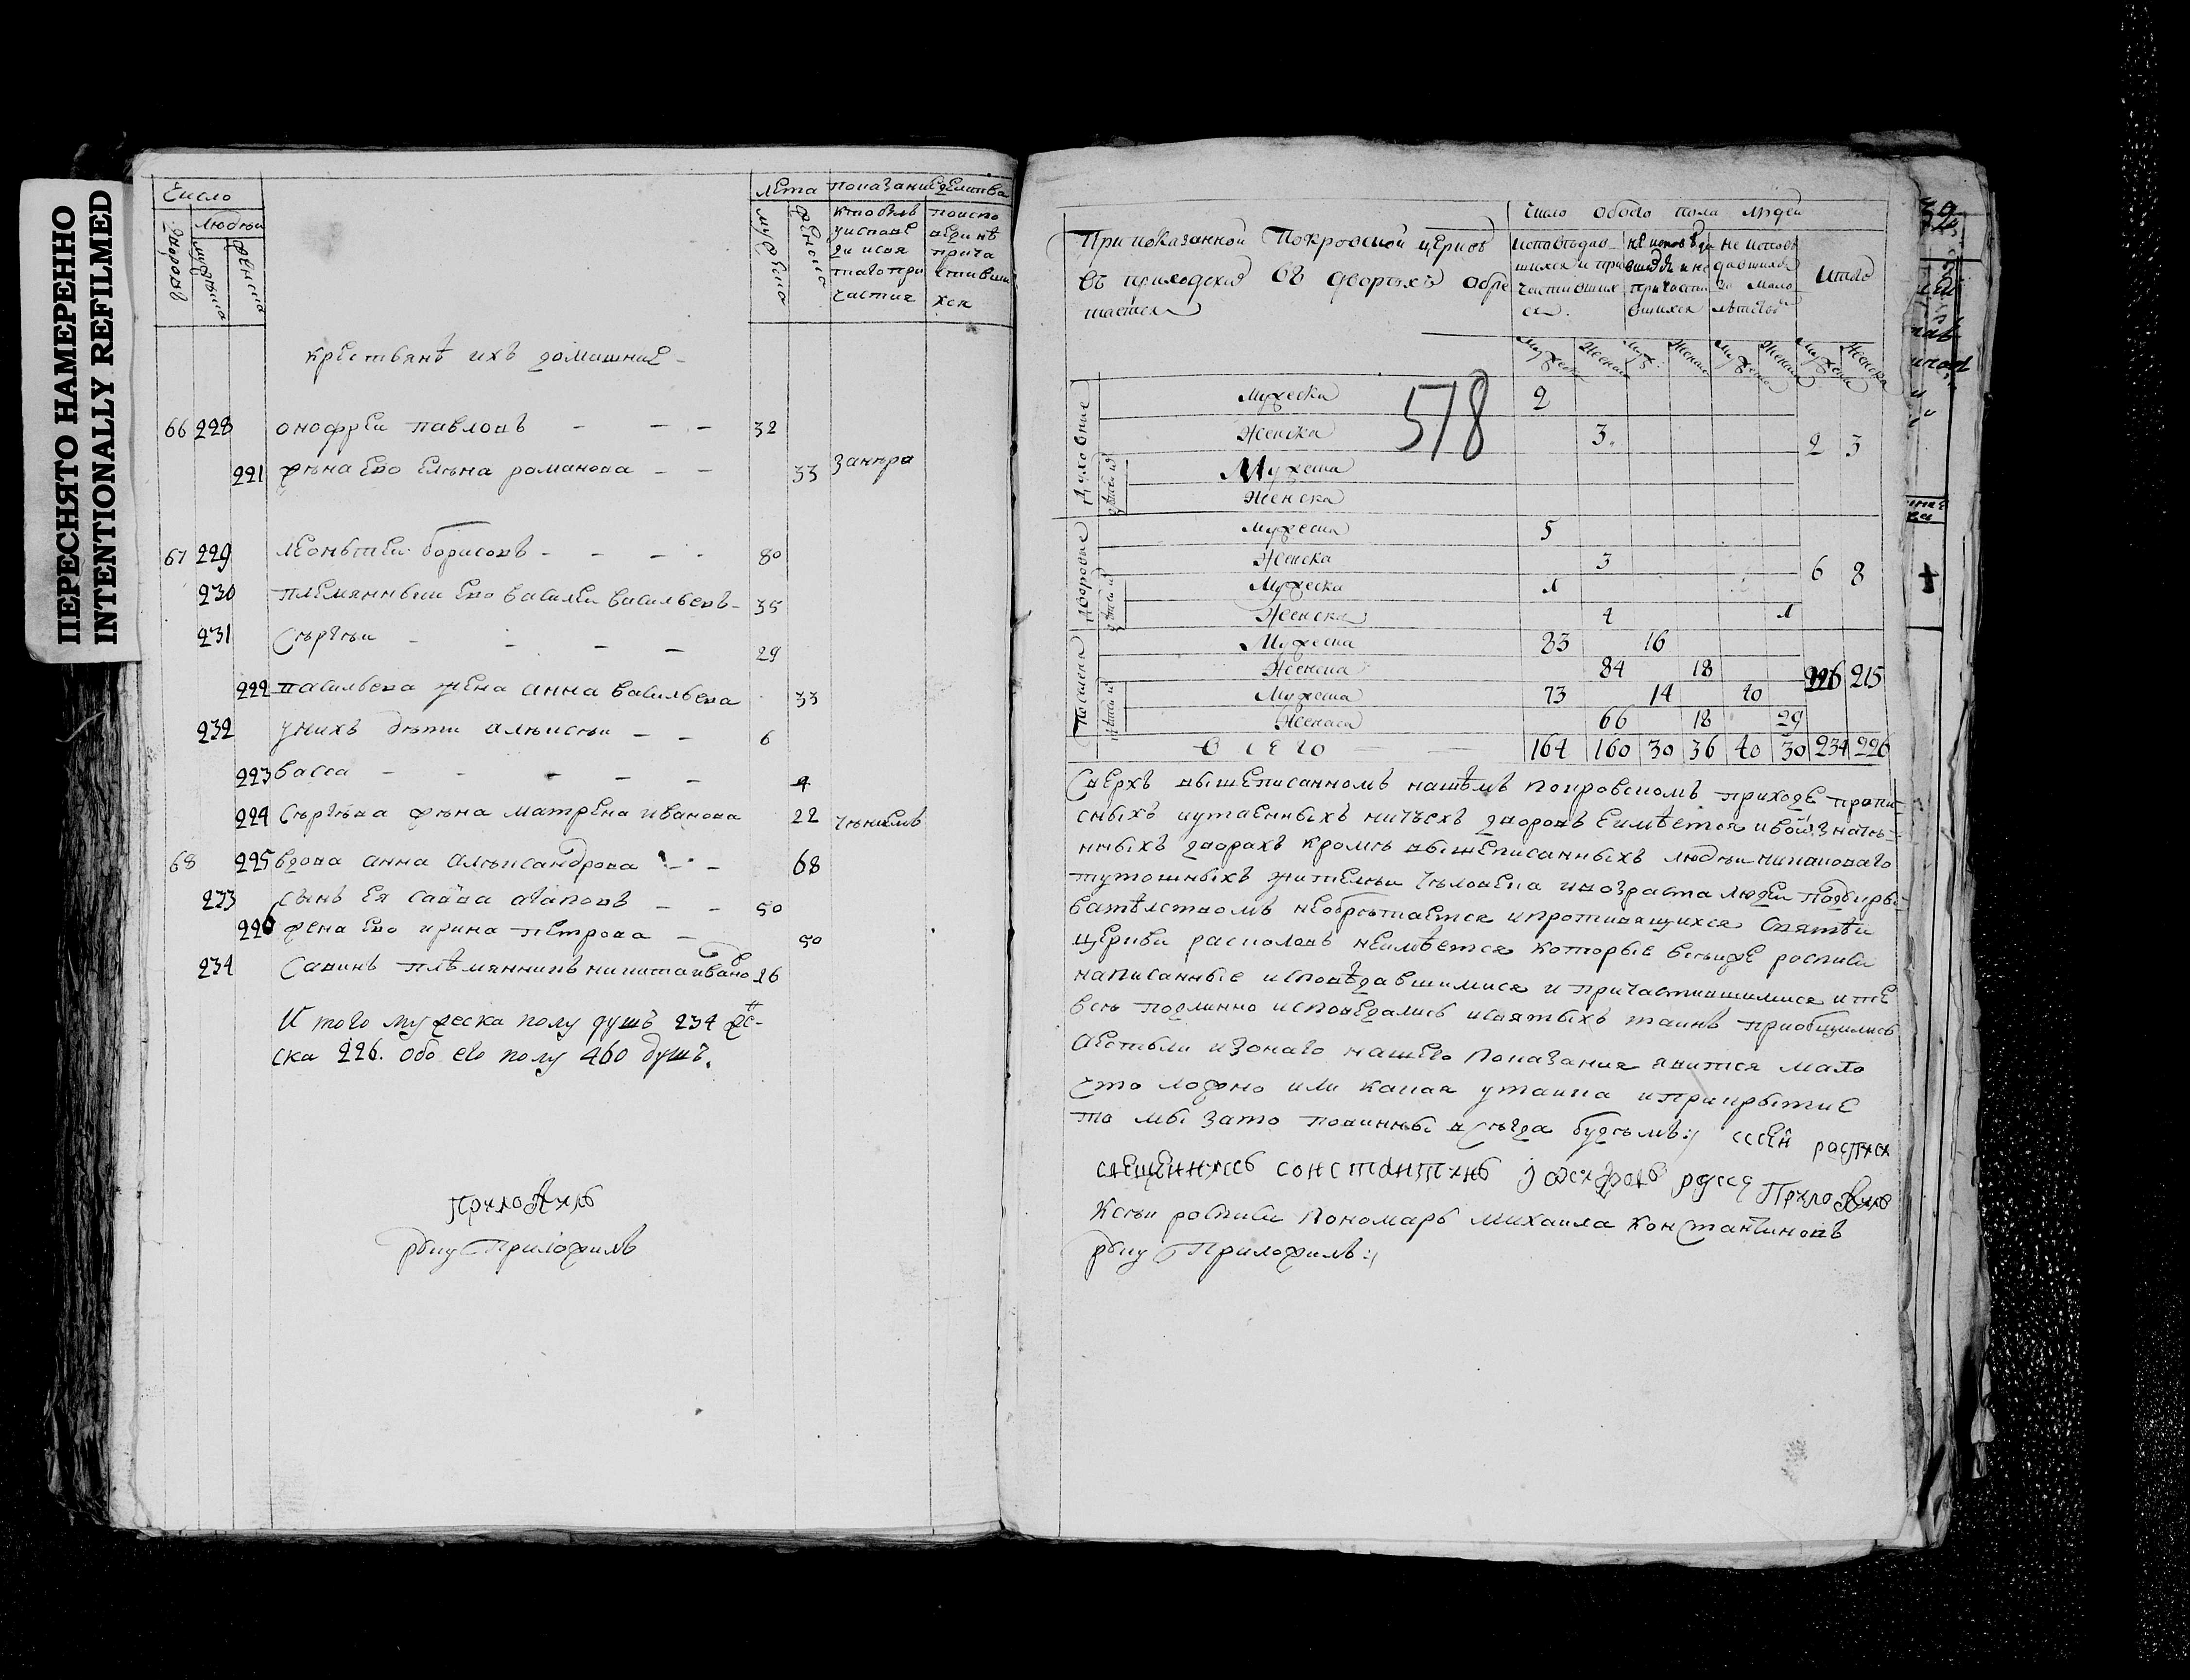 ПЕРЕСНЯТО НАМЕРЕННО
INTENTIONALLY REFILMED
Число
Людѣи
дворовъ
мужеска
женска
Лета
мужеска
женска
показание действа
кто былъ
у исповѣ
ди и свя
таго при
частия
по испо
веди нѣ
прича
стивши
хся
крестьянѣ ихъ домашние
66 228 онофреи павловъ - - - 32
221 жѣна ево елѣна романова - - 33
67 229 леонътеи борисовъ - - - - 80
230 племянныки ево василеи васильевъ - 35
231 Сѣргѣи - - - - 29
222 васильева жена анна васильева 33
232 у нихъ дѣти алѣксѣи - - 6
223 васса - - - - - 4
224 Сѣргѣва жѣна матрена иванова 22
68 225 вдова анна алѣксандрова - - 68
233 сынъ ея савва агаповъ - - 50
226 жена ево ирина петрова - 50
234 Савинъ плѣмянникъ никита ивановъ 26
И того мужеска полу душъ 234 жен-
ска 226. обо его полу 460 душъ.
приложилъ
руку Приложилъ
При показанной Покровской церкви
въ приходскихъ въ дворѣхъ обре
таются
число обоего пола людей
исповѣдав
шихся и при
частивших
ся.
не исповеда
вшихся и не
причасти
вшихся
не испове
давшихся
за мало
лѣтствомъ
итого
Мужеска Женска Муж: Женска Мужеска Женска Мужеска Женска
578
Духовные
Мужеска 2
Женска 3.
2 3
Мужеска
Женска
Дворовые
Мужеска 5
Женска 3
6 8
Мужеска 1
Женска 4 1
Посельна
Мужеска 83 16
Женска 84 18
226 215
Мужеска 73 14 40
Женска 66 18 29
Всего 164 160 30 36 40 30 234 226
Сверхъ вышеписанномъ нашемъ покровскомъ приходе пропи-
сныхъ и утаенныхъ ничьихъ дворовъ не имѣется и въ означе-
нныхъ дворахъ кромѣ вышеписанныхъ людѣи никаковаго
тутошныхъ жителѣи чѣловека и возраста людеи
необрѣтается и противящихся Святѣи
церкви расколовъ неимѣется которые въ сѣи же росписи
написанные исповѣдавшимися и причастившимися и те
всѣ подлинно исповедались и святыхъ таинъ приобщились
а естьли изонаго нашего показания явится мало
что ложно или какая утаика и прикрытие
то мы зато повинны всѣгда будѣмъ:/ к сей росписи
священникъ константинъ руку Приложилъ
К сѣи росписи пономарь михаила константиновъ
руку Приложилъ:/